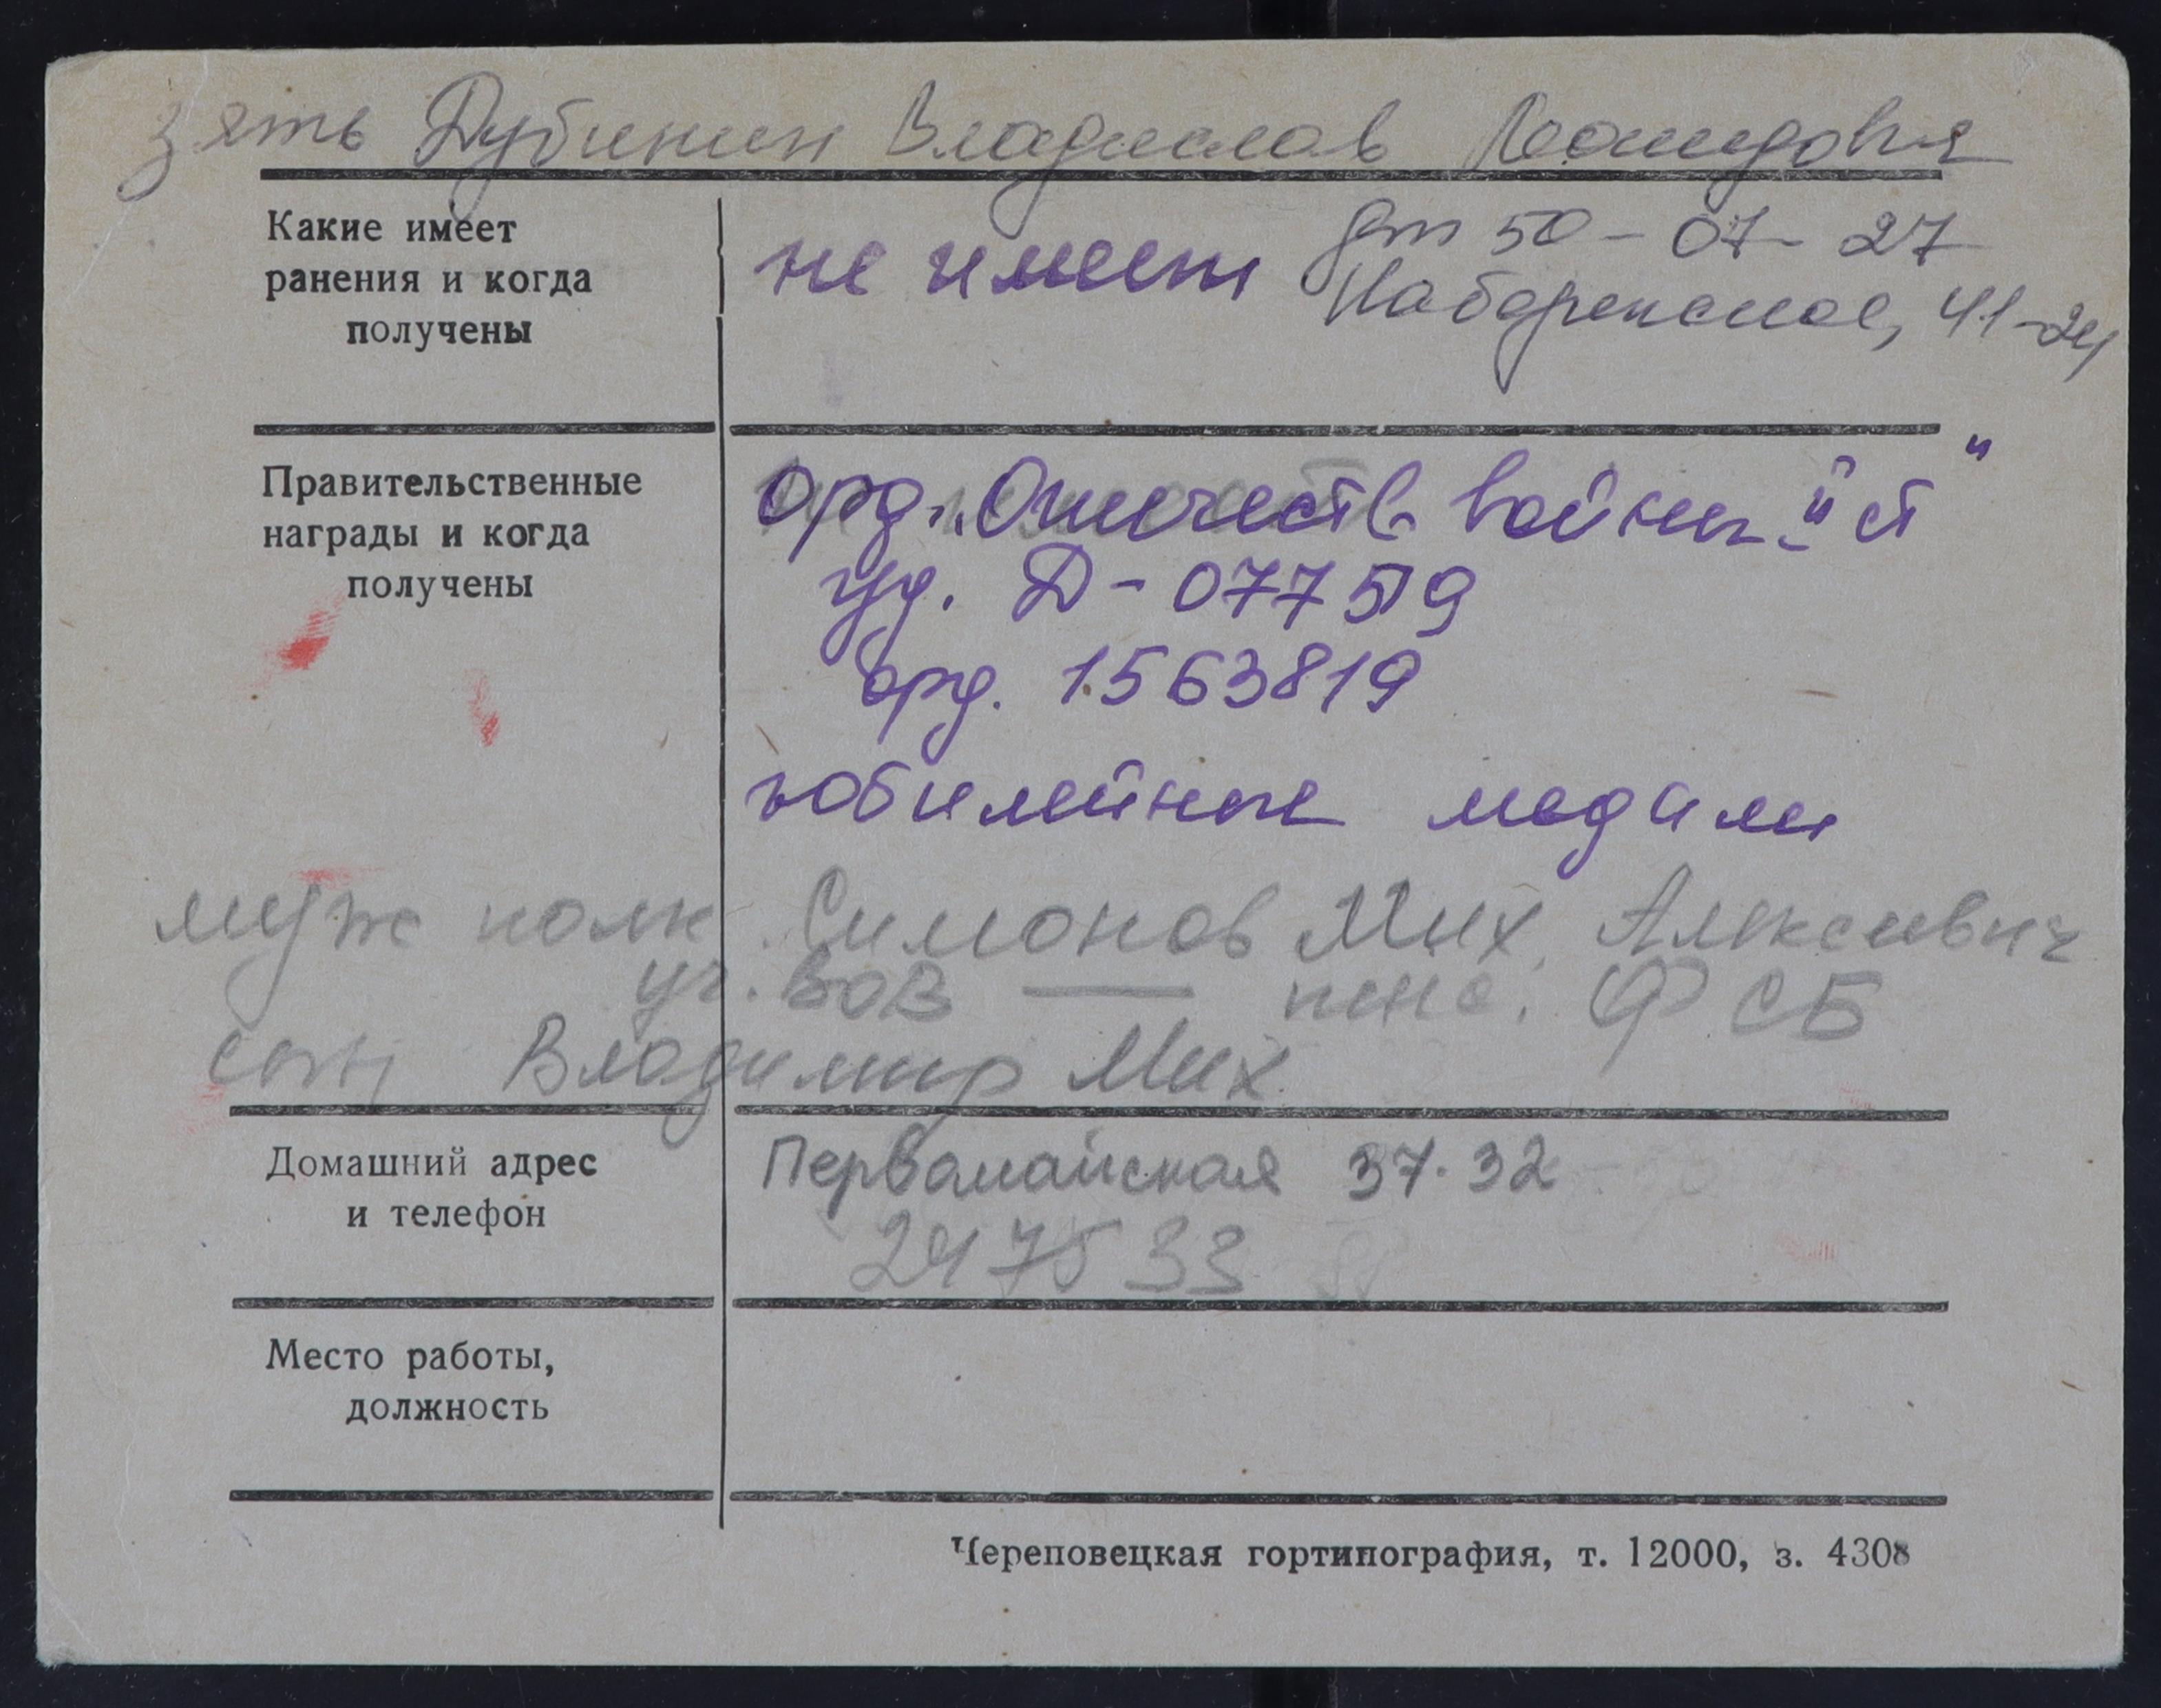 зять Дубинин Владислав Леонидович
Какие имеет
ранения и когда
получены
не имеет
дт 50-07-27
Набережная, 41-24
Правительственные
награды и когда
получены
орд. „Отечеств. войны II ст"
уд. Д-077519
орд. 1563819
юбилейные медали
муж полк. Симонов Мих. Алексеевич
уч. ВОВ — пенс. ФСБ
сын Владимир Мих.
Домашний адрес
и телефон
Первомайская 37-32
247533
Место работы,
должность
Череповецкая гортипография, т. 12000, з. 4308